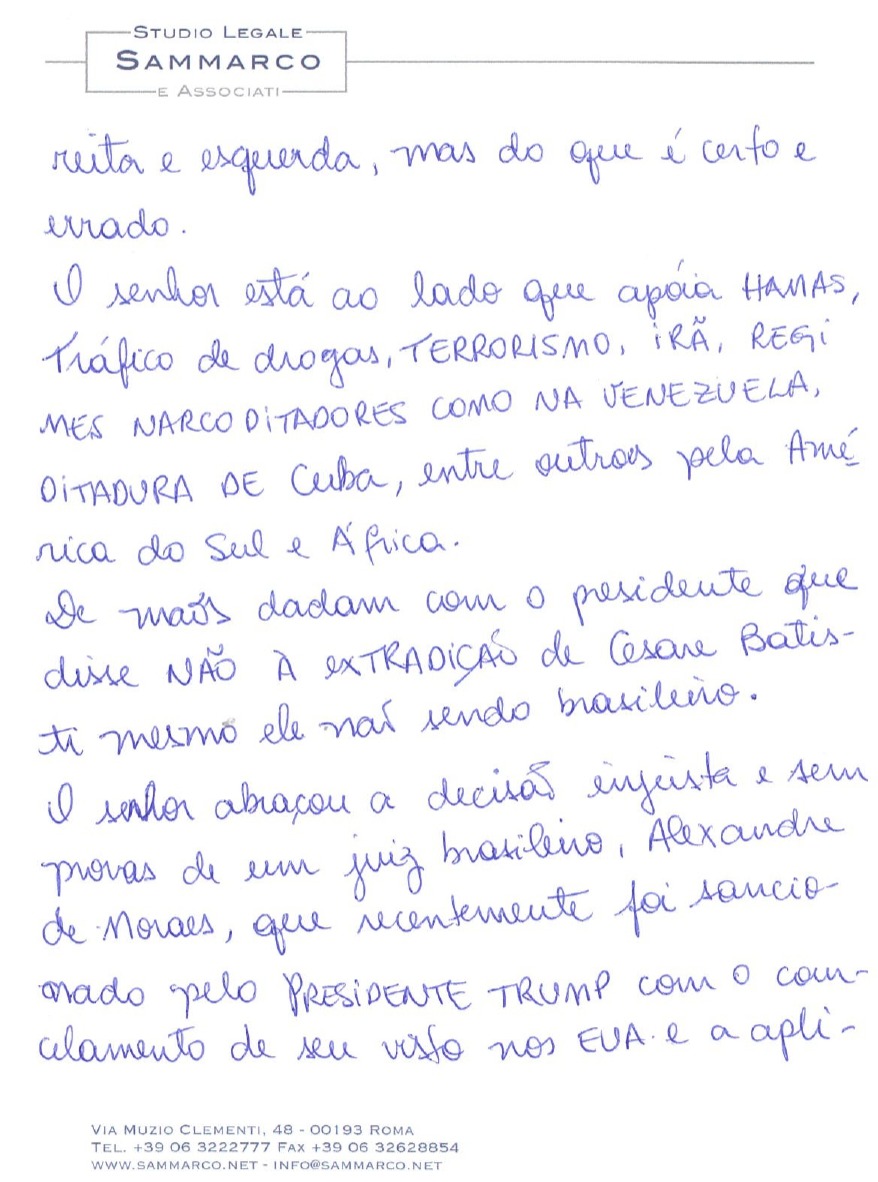 STUDIO LEGALE
SAMMARCO
E ASSOCIATI
reita e esquerda, mas do que é certo e
errado.
O senhor está ao lado que apóia HAMAS,
Tráfico de drogas, TERRORISMO, IRÃ, REGI
MES NARCO DITADORES COMO NA VENEZUELA,
DITADURA DE Cuba, entre outros pela Amé
rica do Sul e África.
De maõs dadam com o presidente que
disse NÃO À exTRADIÇÃO de Cesare Batis-
ti mesmo ele naõ sendo brasileiro.
O senhor abraçou a decisaõ injusta e sem
provas de um juiz brasileiro, Alexandre
de Moraes, que recentemente foi sancio-
onado pelo PRESIDENTE TRUMP com o can-
celamento de seu visto nos EUA e a apli-
VIA MUZIO CLEMENTI, 48 - 00193 ROMA
TEL. +39 06 3222777 FAX +39 06 32628854
WWW.SAMMARCO.NET - INFO@SAMMARCO.NET